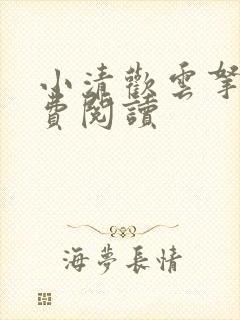 小清歡雲拏
費閱讀
海夢長情